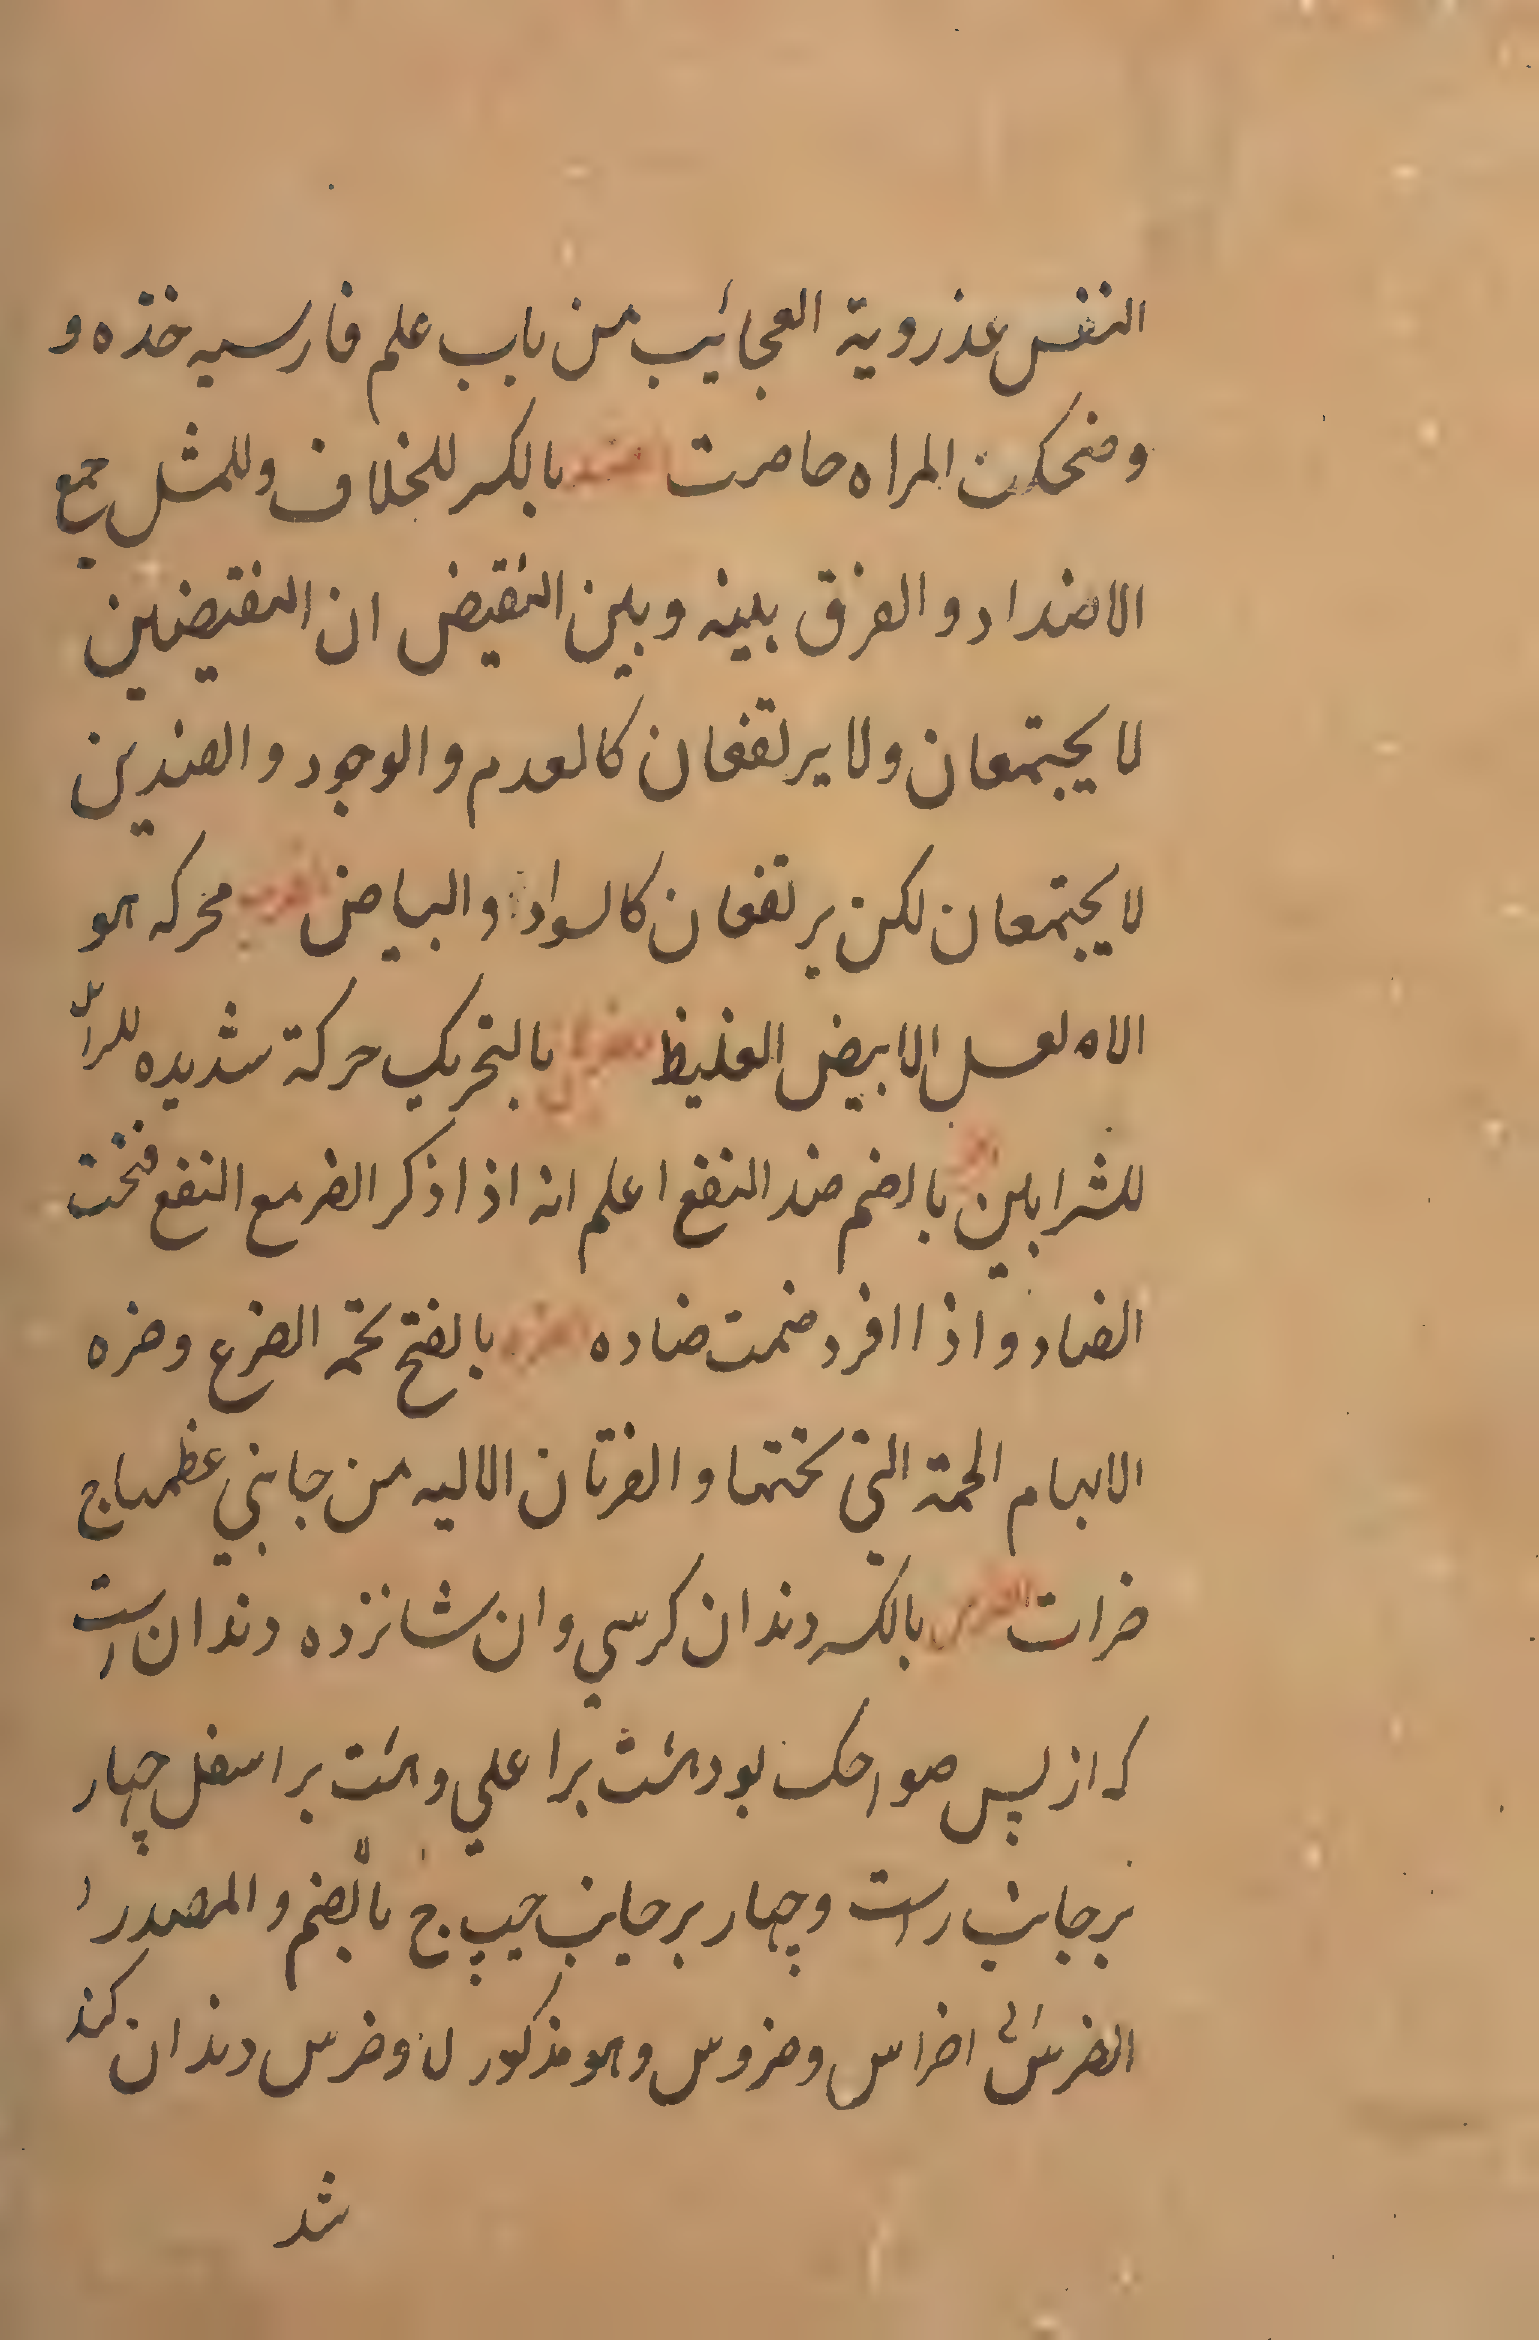 النفس عذروية العجائب من باب علم فارسيه خذه و
وضحكت المراه حاصرت الضد بالكسر للخلاف وللمثل جمع
الاضداد والفرق بينه وبين النقيض ان النقيضين
لا يجتمعان ولا يرتفعان كالعدم والوجود والضدين
لا يجتمعان لكن يرتفعان كالسواد والبياض الضرب محركه هو
الاه لعسل الابيض الغليظ ضربان بالتحريك حركة شديده للرا
للشرايين الضر بالضم ضد النفع اعلم انه اذا ذكر الضر مع النفع فتحت
الضاد واذا افرد ضمت ضاده الضره بالفتح تحمه الضرع وضره
الابهام الحمة التي تحتها والضرتان الاليه من جانبي عظمها ج
ضرات الضرس بالكسر دندان كرسي وان شانزده دندان است
كه از پس ضواحك بود هشت بر اعلي وهشت بر اسفل چهار
بر جانب راست وچهار بر جانب چپ ج بالضم والمصدر
الضرس اضراس وضروس وهو مذكور لا وضرس دندان كند
شد